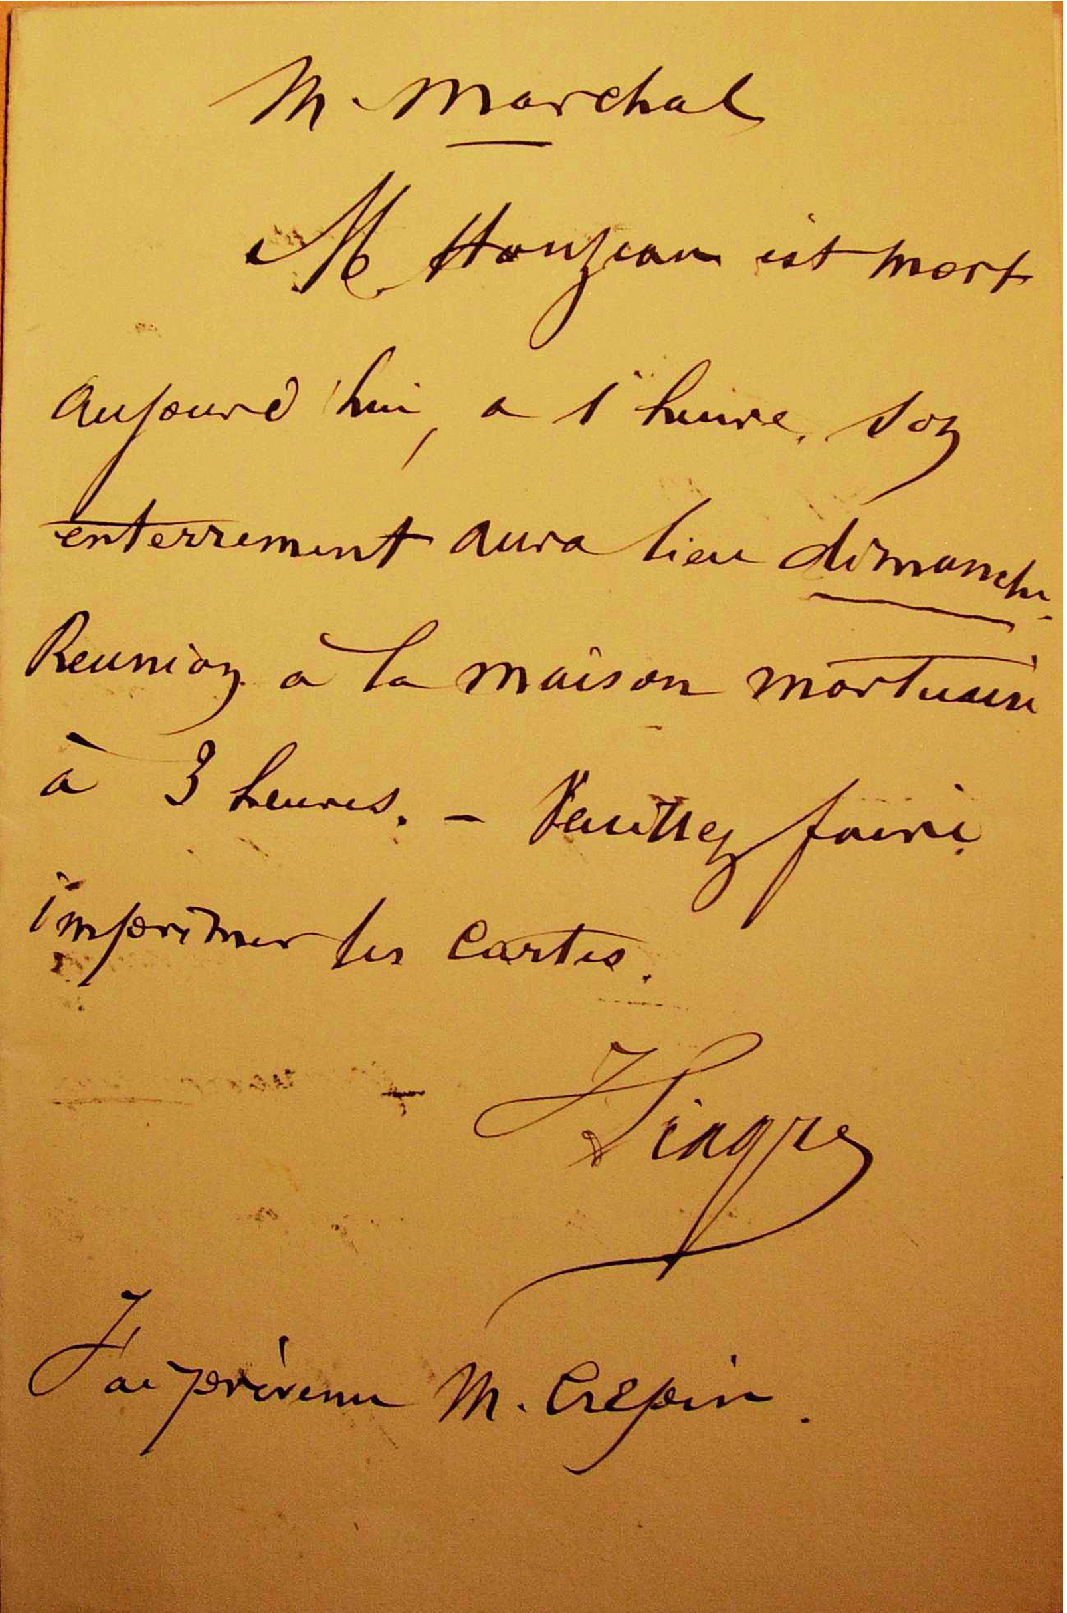 M. Marchal
M Houzeau est mort
aujourd'hui, a 1 heure. Son
enterrement aura lieu dimanche.
Reunion à la maison mortuaire
à 3 heures. – Veuillez faire
imprimer les cartes.
J'ai prévenu M. Crépin.